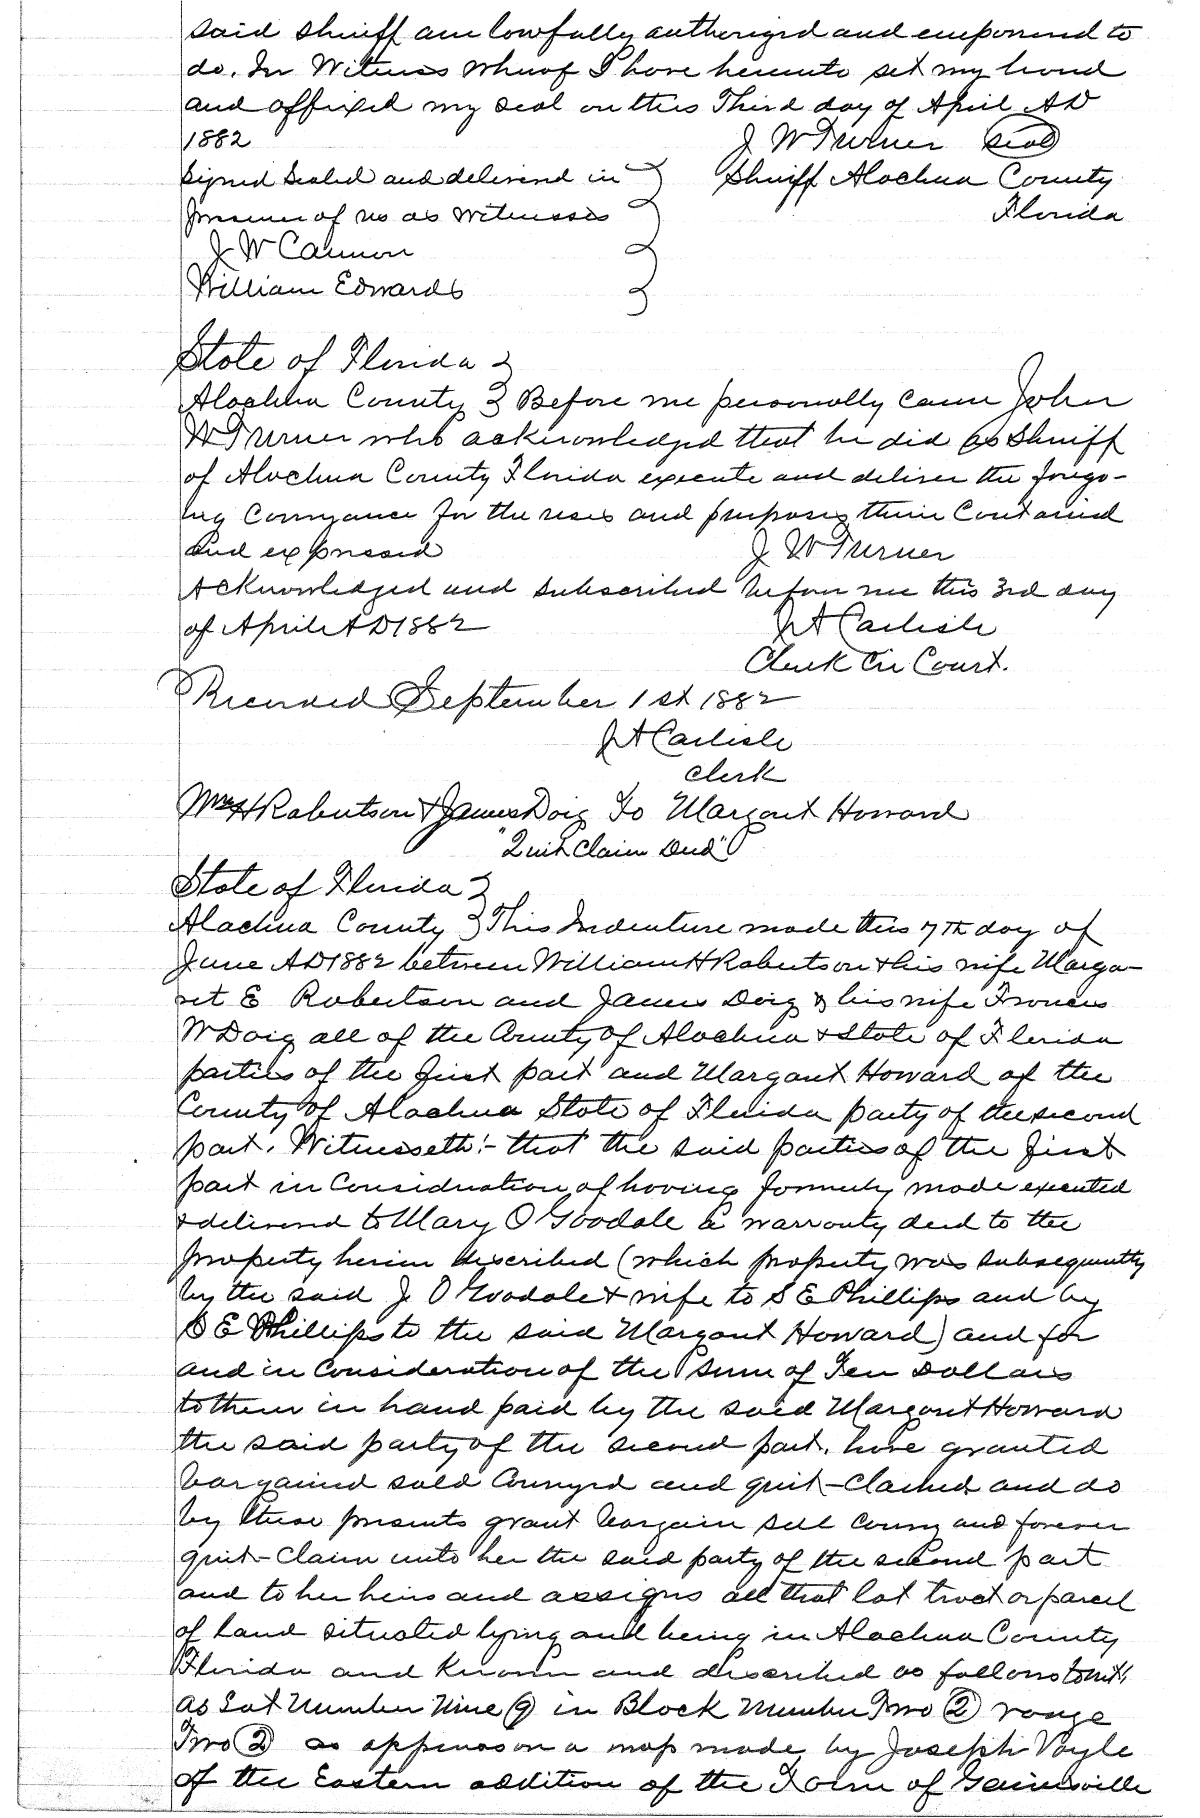 said sheriff am lawfully authorized and empowered to
do. In Witness Whereof I have hereunto set my hand
and affixed my seal on this Third day of April AD
1882 J W Turner seal
Signed Sealed and delivered in Sheriff Alachua County
presence of us as witnesses Florida
J W Cannon
William Edwards
State of Florida
Alachua County Before me personally came John
W Turner who acknowledged that he did as Sheriff
of Alachua County Florida execute and deliver the forego-
ing Conveyance for the uses and purposes therein Contained
and expressed J W Turner
Acknowledged and subscribed before me this 3rd day
of April AD 1882 J A Carlisle
Clerk Cir Court.
Recorded September 1st 1882
J A Carlisle
Clerk
Wm H Robertson & James Doig To Margaret Howard
"Quit Claim Deed"
State of Florida
Alachua County This Indenture made this 7th day of
June AD 1882 between William H Robertson & his wife Marga-
ret E Robertson and James Doig & his wife Frances
W Doig all of the County of Alachua & State of Florida
parties of the first part and Margaret Howard of the
County of Alachua State of Florida party of the second
part. Witnesseth:- that the said parties of the first
part in Consideration of having formerly made executed
& delivered to Mary O Goodale a warranty deed to the
property herein described (which property was subsequently
by the said J O Goodale & wife to S E Phillips and by
S E Phillips to the said Margaret Howard) and for
and in Consideration of the Sum of Ten Dollars
to them in hand paid by the said Margaret Howard
the said party of the second part, have granted
bargained sold Conveyed and quit-claimed and do
by these presents grant bargain sell convey and forever
quit-claim unto her the said party of the second part
and to her heirs and assigns all that lot tract or parcel
of land situated lying and being in Alachua County
Florida and known and described as follows towit:
as Lot Number Nine (9) in Block Number Two (2) range
Two (2) as appears on a map made by Joseph Voyle
of the Eastern addition of the Town of Gainesville